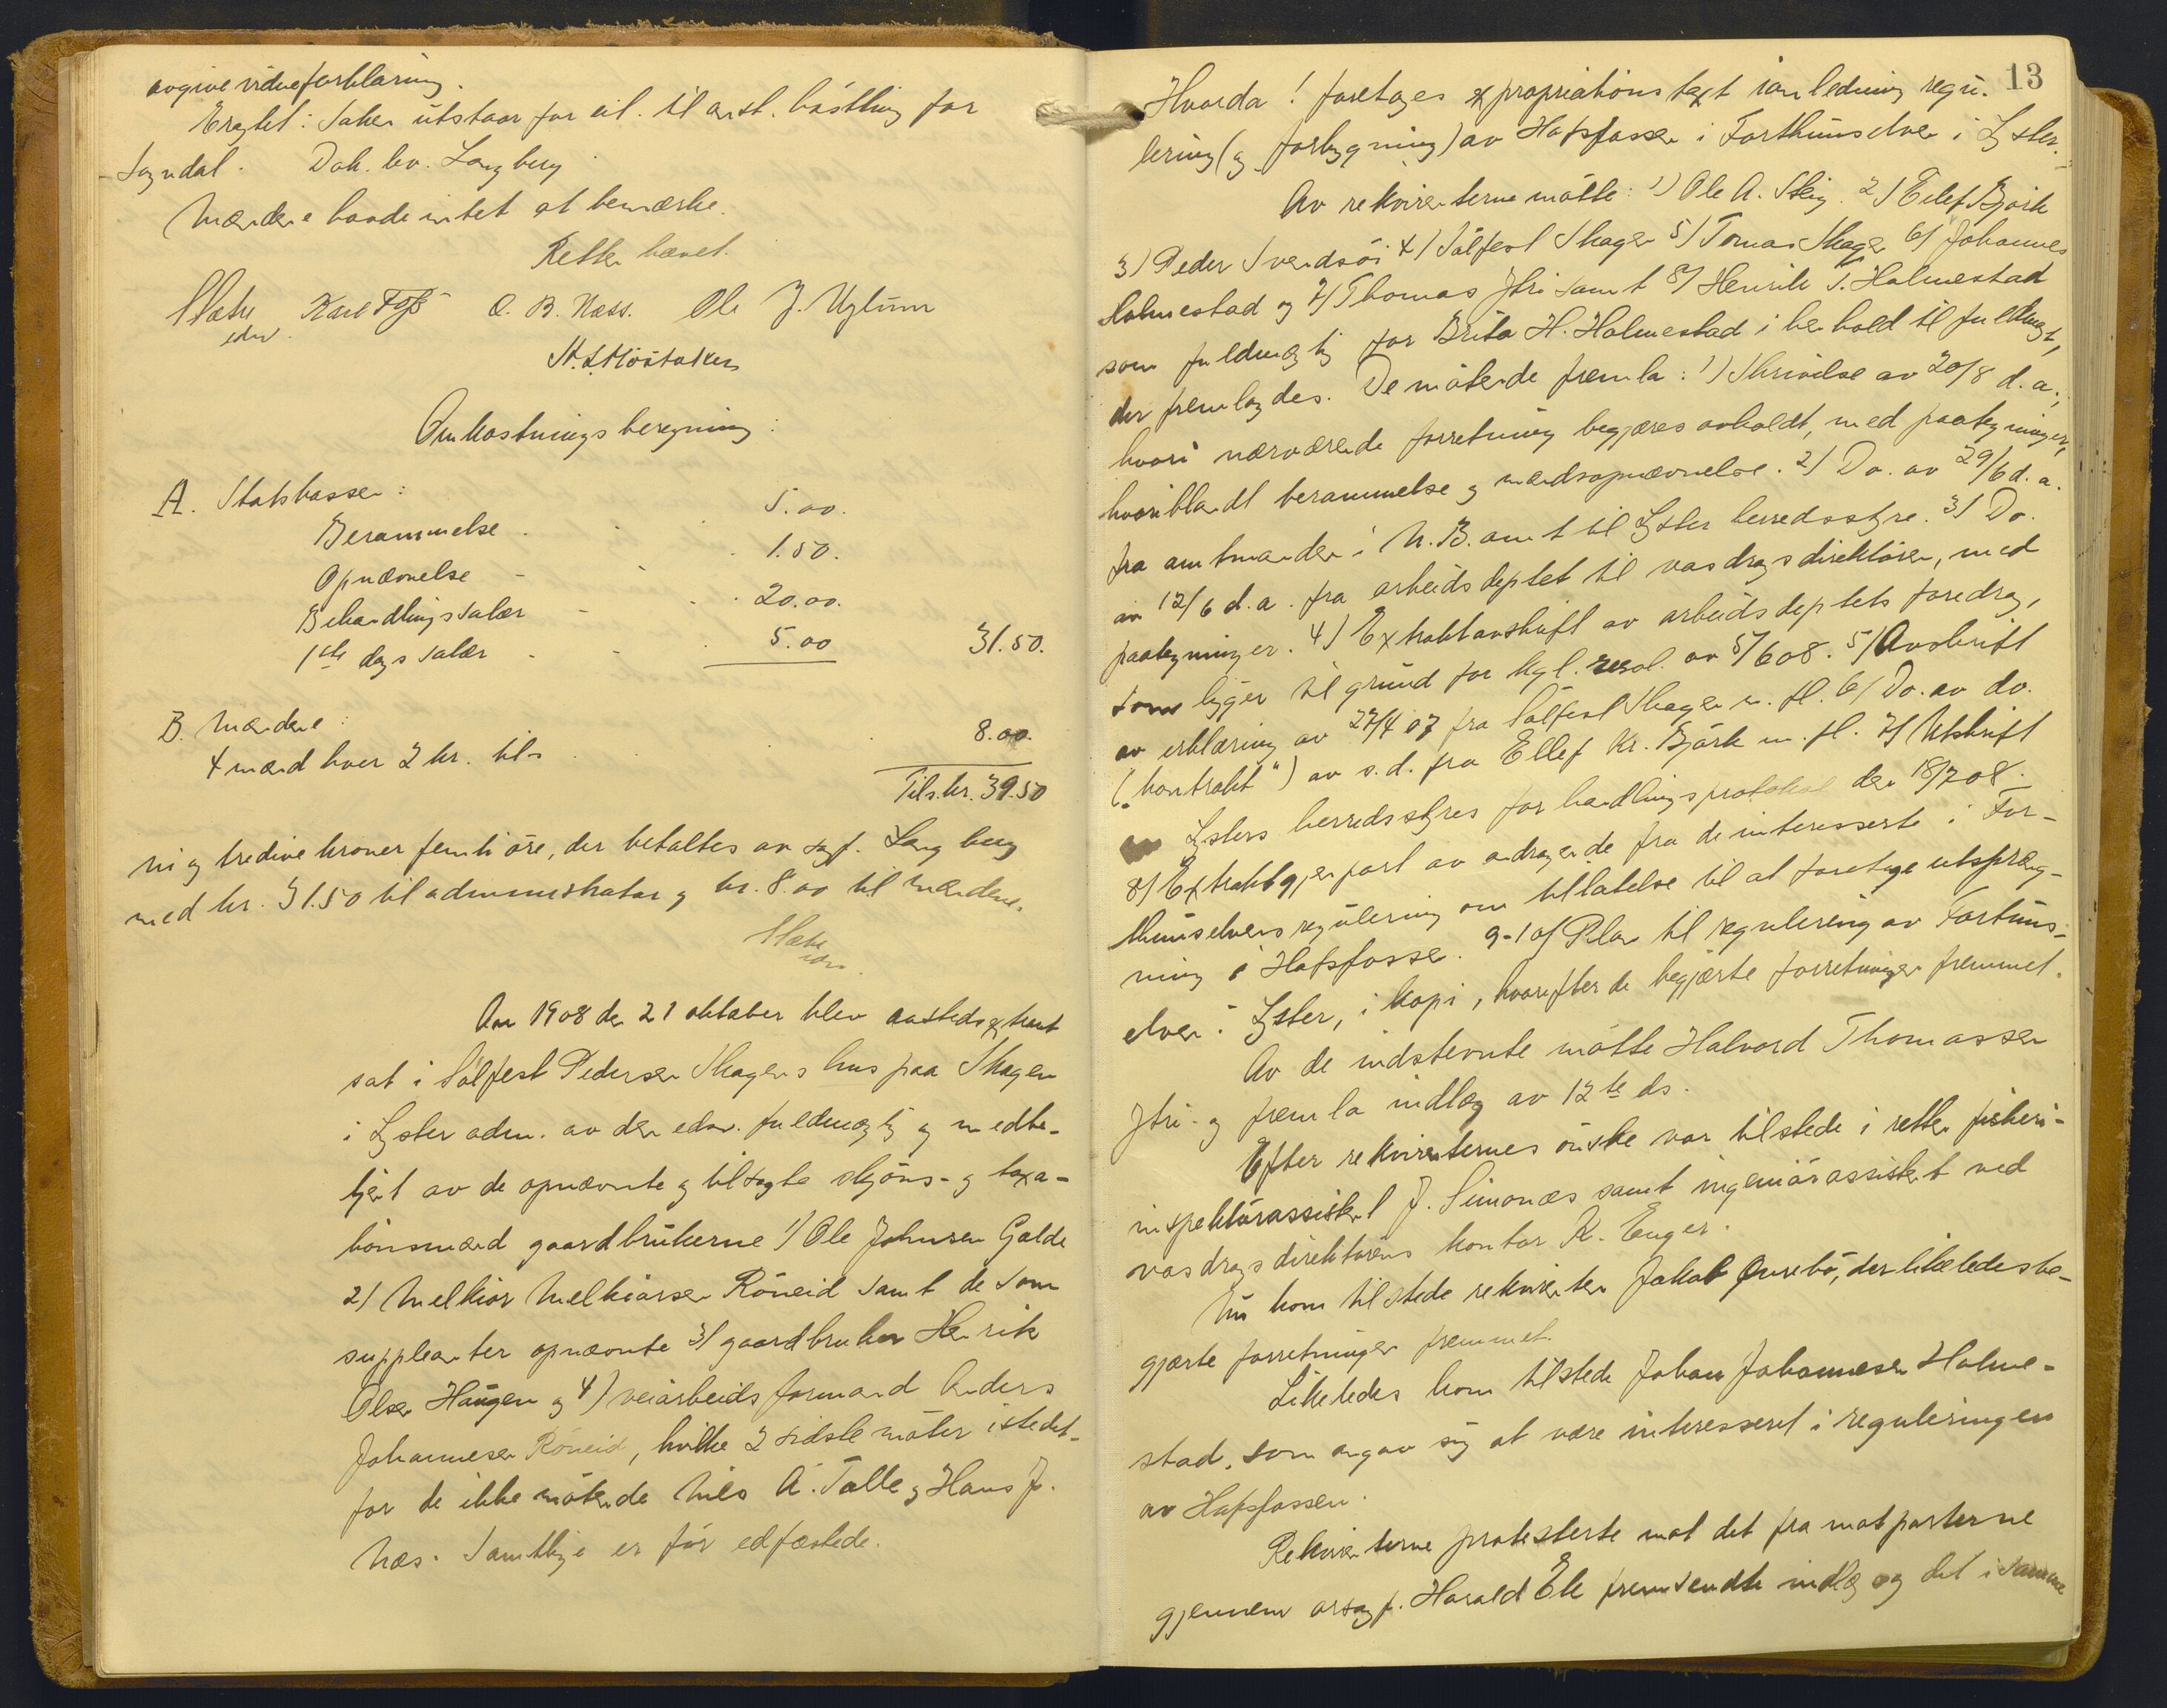 avgive vidneforklaring.
Eragtet: Saken utstaar for eil. til avst. bástling for
Sogndal. Dok. lev. Langberg
Mændene havde intet at bemærke.
Retten hævet.
Karl Foss O. B. Næss. Ole J. Uglum
edsv.
Omkostningsberegning:
A. Statskassen:
Berammelse 5.00.
Opnævnelse 1.50.
Behandlingssalær 20.00.
1ste dags salær 5.00 31.50.
B. Mændene:
4 mænd hver 2 kr. til- 8.00.
Tils. kr. 39.50
ni og tredive kroner femti öre, der betaltes av sagf. Langberg
med kr. 31.50 til administrator og kr. 8.00 til mændene.
edsv.
Aar 1908 den 21 oktober blev aastedsextraret
sat i Sölfest Pedersen Skagens hus paa Skagen
i Lyster adm. av den edsv. fuldmægtig og medbe-
tjent av de opnævnte og tilsagte skjöns- og taxa-
tionsmænd gaardbrukerne 1) Ole Johnsen Galde
2) Melkior Melkiorsen Röneid samt de som
suppleanter opnævnte 3) gaardbruker Henrik
Olsen Haugen og 4) veiarbeidsformand Anders
Johannesen Röneid, hvilke 2 sidste möter istedet-
for de ikke mötende Nils A. Talle og Hans J.
Næs. Samtlige er för edfæstede.
13
Hvorda! foretoges expropriationstaxt i anledning regu-
lering (og forbygning) av Hafsfossen i Forthunselven i Lyster.
Av rekvirenterne mötte: 1) Ole A. Steig 2) Eilef Bjørk
3) Peder Svendsöi 4) Sölfest Skagen 5) Tomas Skagen 6) Johannes
Holmestad og 7) Thomas Ytri samt 8) Henrik T. Holmestad
som fuldmægtig for Brita H. Holmestad i henhold til fuldmagt,
der fremlagdes. De mötende fremla: 1) Skrivelse av 20/8 d.a.,
hvori nærværende forretning begjæres avholdt, med paategninger,
hvoriblandt berammelse og mændsopnævnelse. 2) Do. av 29/6 d.a.
fra amtmanden i N.B. amt til Lyster herredsstyre. 3) Do.
av 12/6 d.a. fra arbeidsdeptet til vasdragsdirektören, med
paategninger. 4) Extraktavskrift av arbeidsdeptets foredrag,
som ligger til grund for kgl. resol. av 5/6 08. 5) Avskrift
av erklæring av 27/4 07 fra Sölfest Skagen m. fl. 6) Do. av do.
("kontrakt") av s.d. fra Ellef Kr. Bjørk m. fl. 7) Utskrift
Lysters herredsstyres forhandlingsprotokol den 18/7 08.
8) Extraktgjenpart av andragende fra de interesserte i For-
thunselvens regulering om tillatelse til at foretage utspræng-
ning i Hafsfossen. 9-10) Plan til regulering av Fortuns-
elven i Lyster, i kopi, hvorefter de begjærte forretningen fremmet.
Av de indstevnte mötte Halvord Thomassen
Ytri og fremla indlæg av 12te ds.
Efter rekvirenternes önske var tilstede i retten fiskeri-
inspektörassistent J. Simonæs samt ingeniörassistent ved
vasdragsdirektörens kontor R. Enger.
Nu kom tilstede rekvirenten Jakob Øvrebö, der likeledes be-
gjærte forretningen fremmet.
Likeledes kom tilstede Johan Johannesen Holme-
stad, som angav sig at være interesseret i reguleringen
av Hafsfossen.
Rekvirenterne protesterte mot det fra motparterne
gjennem orsagf. Harald Ek fremsendte indlæg og det i samme